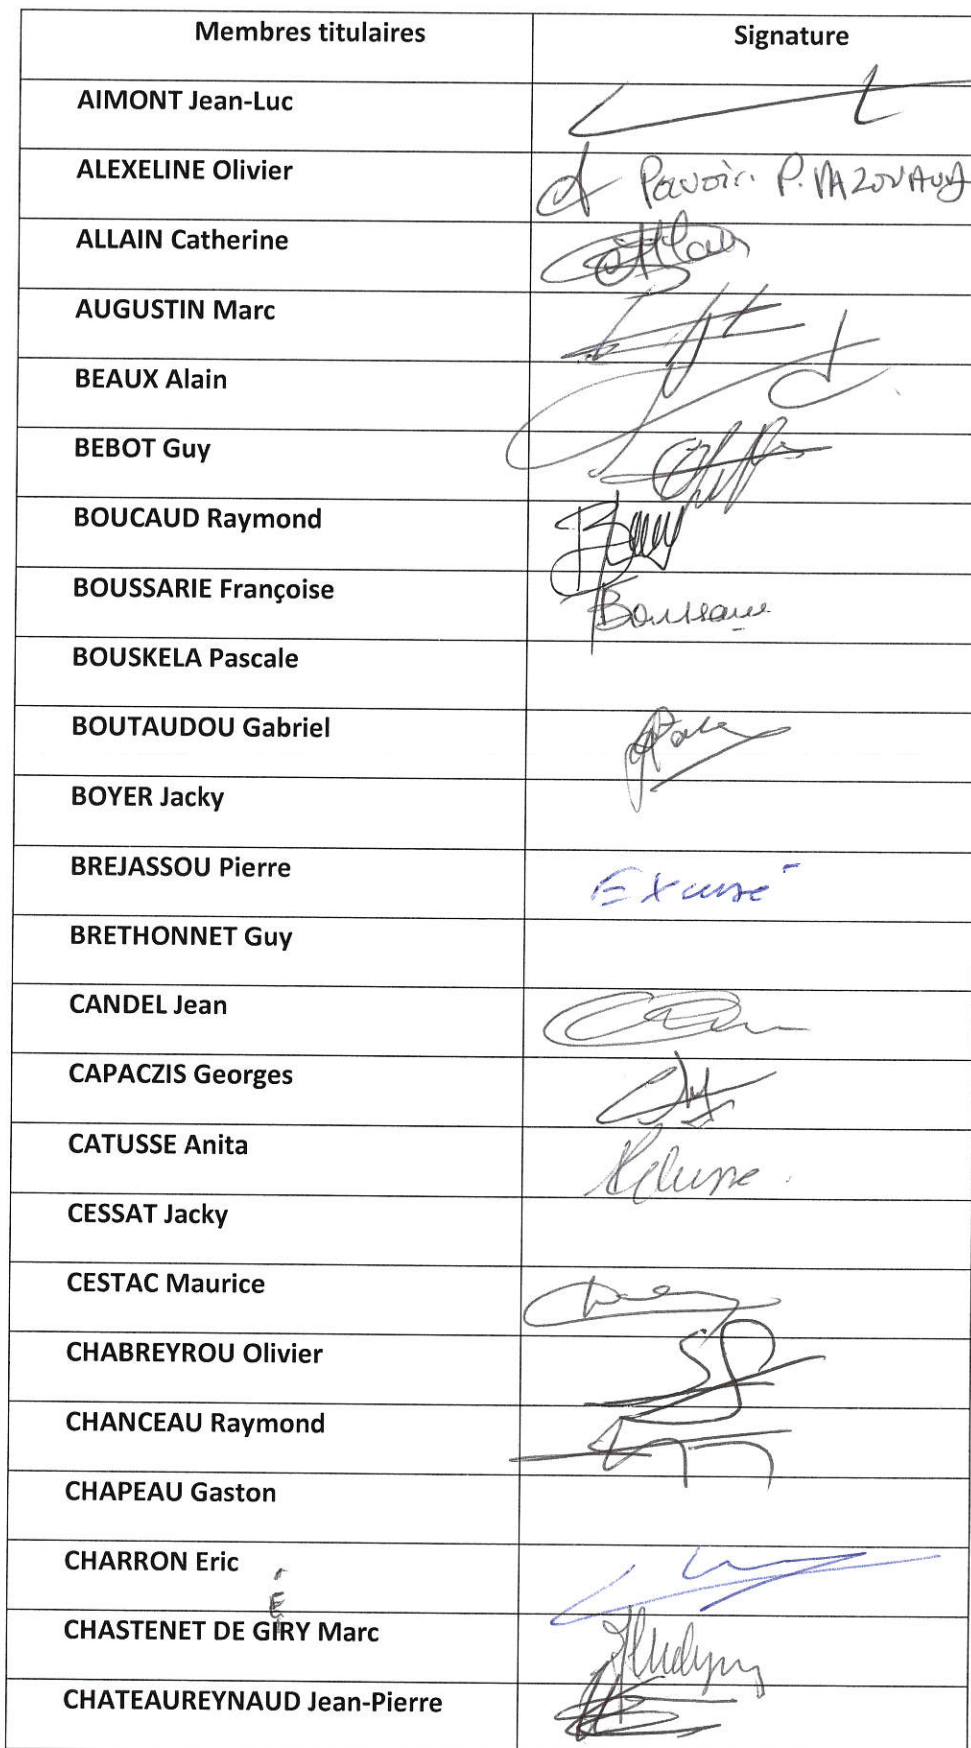 Membres titulaires Signature
AIMONT Jean-Luc
ALEXELINE Olivier Pouvoir P.
ALLAIN Catherine
AUGUSTIN Marc
BEAUX Alain
BEBOT Guy
BOUCAUD Raymond
BOUSSARIE Françoise
BOUSKELA Pascale
BOUTAUDOU Gabriel
BOYER Jacky
BREJASSOU Pierre Excusé
BRETHONNET Guy
CANDEL Jean
CAPACZIS Georges
CATUSSE Anita
CESSAT Jacky
CESTAC Maurice
CHABREYROU Olivier
CHANCEAU Raymond
CHAPEAU Gaston
CHARRON Eric
É
CHASTENET DE GIRY Marc
CHATEAUREYNAUD Jean-Pierre